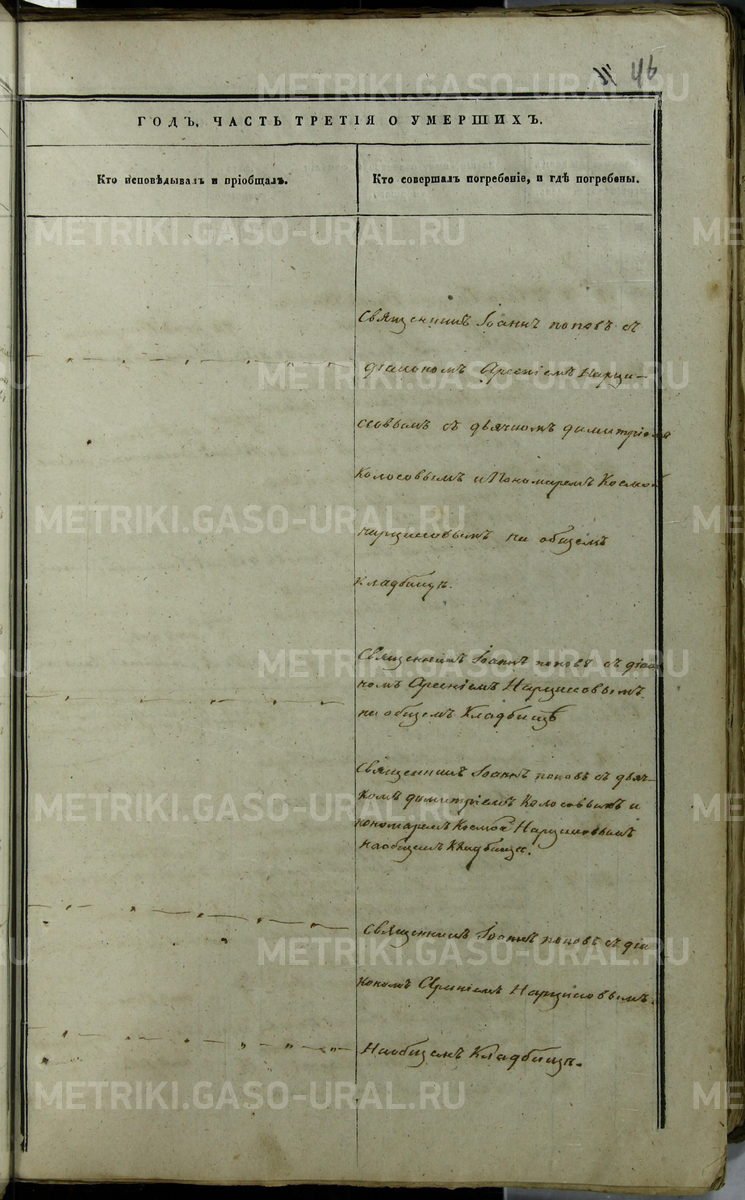 46
ГОДЪ, ЧАСТЬ ТРЕТІЯ О УМЕРШИХЪ.
Кто исповѣдывалъ и пріобщалъ.
Кто совершалъ погребеніе, и гдѣ погребены.
Священникъ Іоаннъ поповъ съ
діакономъ Арсеніемъ Нарци-
ссовымъ съ дьячкомъ димитріемъ
Колосовымъ и Пономаремъ Космою
нарциссовымъ на общемъ
кладбищѣ.
Священникъ Іоаннъ поповъ съ діако
номъ Арсеніемъ Нарциссовымъ
на общемъ Кладбищѣ
Священникъ Іоаннъ поповъ съ дьяч-
комъ димитріемъ Колосовымъ и
пономаремъ Космою Нарциссовымъ
на общемъ Кладбищѣ.
Священникъ Іоаннъ поповъ съ діа
кономъ Арсеніемъ Нарциссовымъ.
На общемъ Кладбищѣ.
METRIKI.GASO-URAL.RU